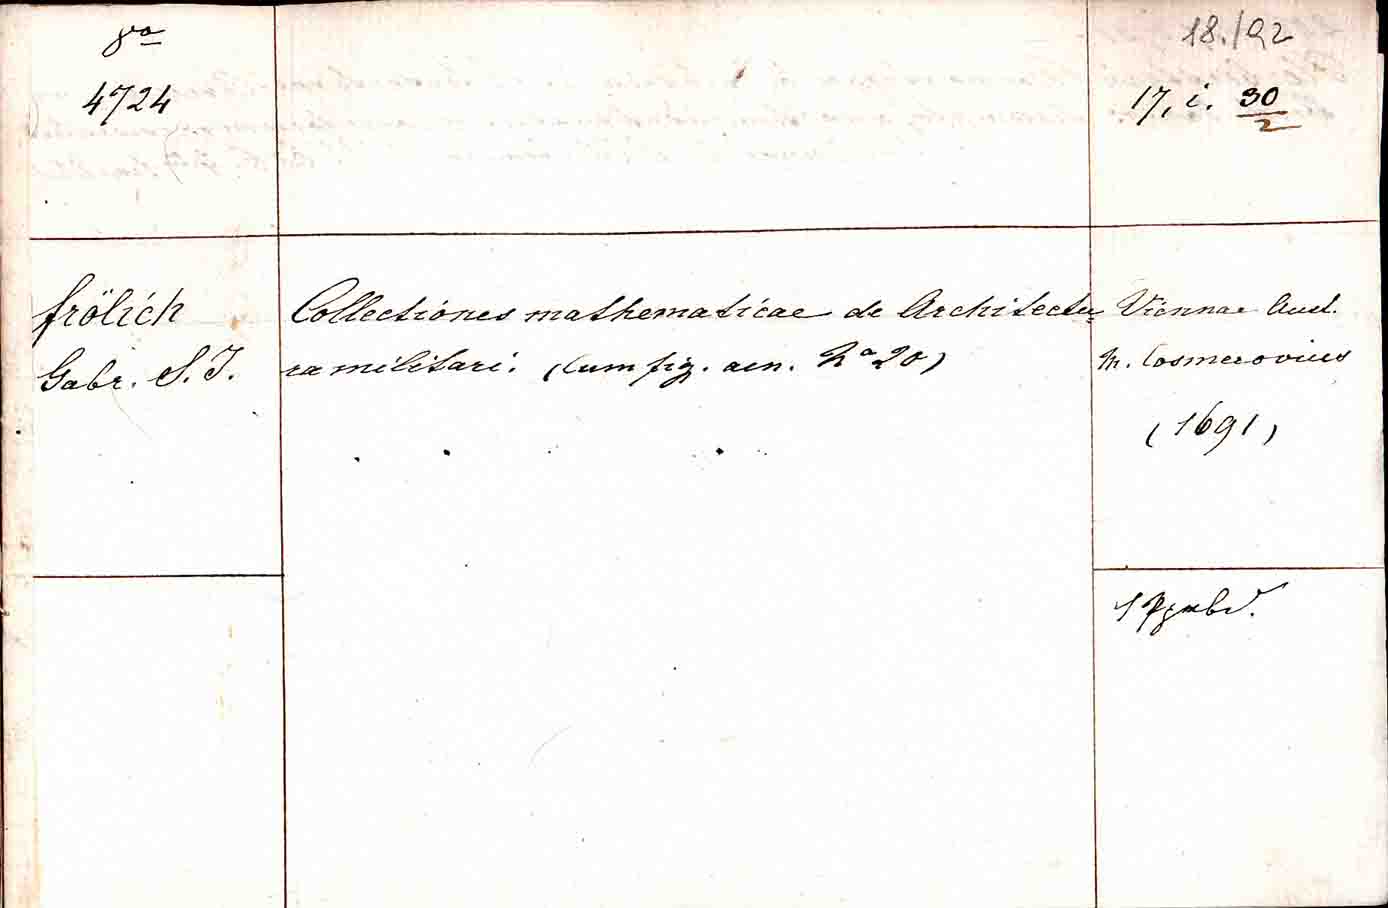 8o
4724
18./92
17, i. 30/2
Frölich
Gabr. S. J.
Collectiones mathematicae de Architectu-
ra militari. (Cum fig. aen. No 20)
Viennae Aust.
M. Cosmerovius
(1691)
1 Pgmbd.